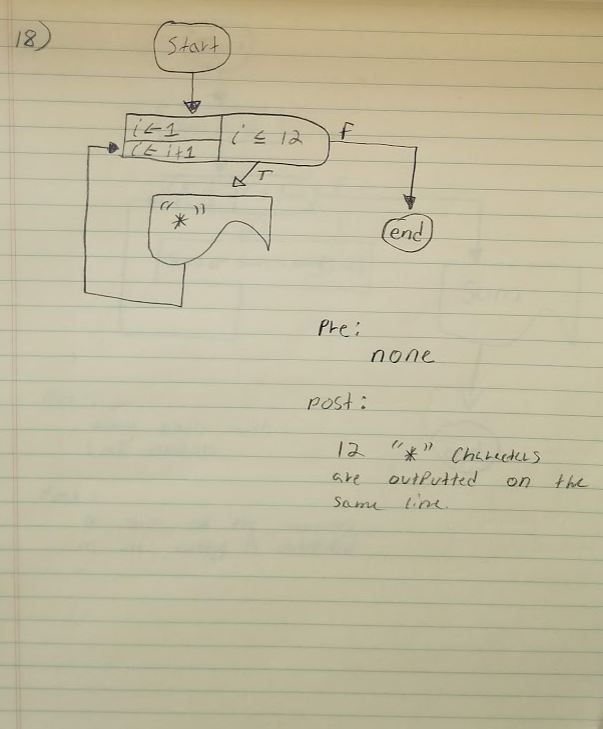 18)
Start
i ← 1
i ← i+1
i ≤ 12
F
T
"*"
end
Pre:
none
post:
12 "*" Characters
are outputted on the
same line.